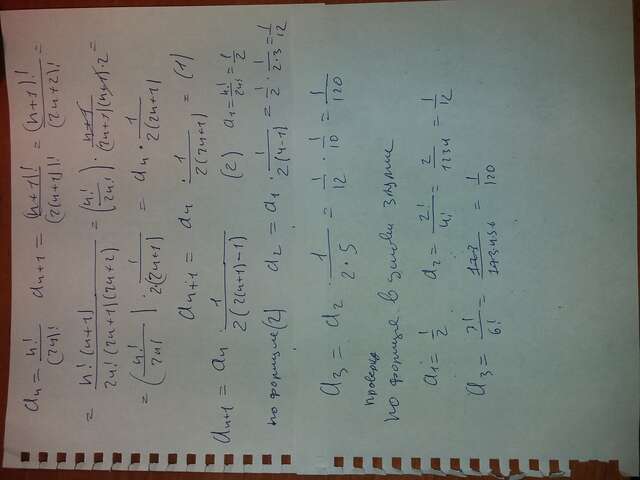 aₙ = n!/(2n)! aₙ₊₁ = (n+1)!/(2(n+1))! = (n+1)!/(2n+2)! =
= n!(n+1)/(2n!(2n+1)(2n+2)) = (n!/2n!) · (n+1)/((2n+1)(n+1)·2) =
= (n!/2n!) · 1/(2·(2n+1)) = aₙ · 1/(2(2n+1))
aₙ₊₁ = aₙ · 1/(2(2n+1)) = (1)
aₙ₊₁ = aₙ · 1/(2(2(n+1)-1)) (2) a₁ = n!/2n! = 1/2
по формуле (2) a₂ = a₁ · 1/(2(4-1)) = 1/2 · 1/(2·3) = 1/12
a₃ = a₂ · 1/(2·5) = 1/12 · 1/10 = 1/120
проверка
по формуле в условии
a₁ = 1/2 a₂ = 2!/4! = 2/1234 = 1/12
a₃ = 3!/6! = 123/123·456 = 1/120